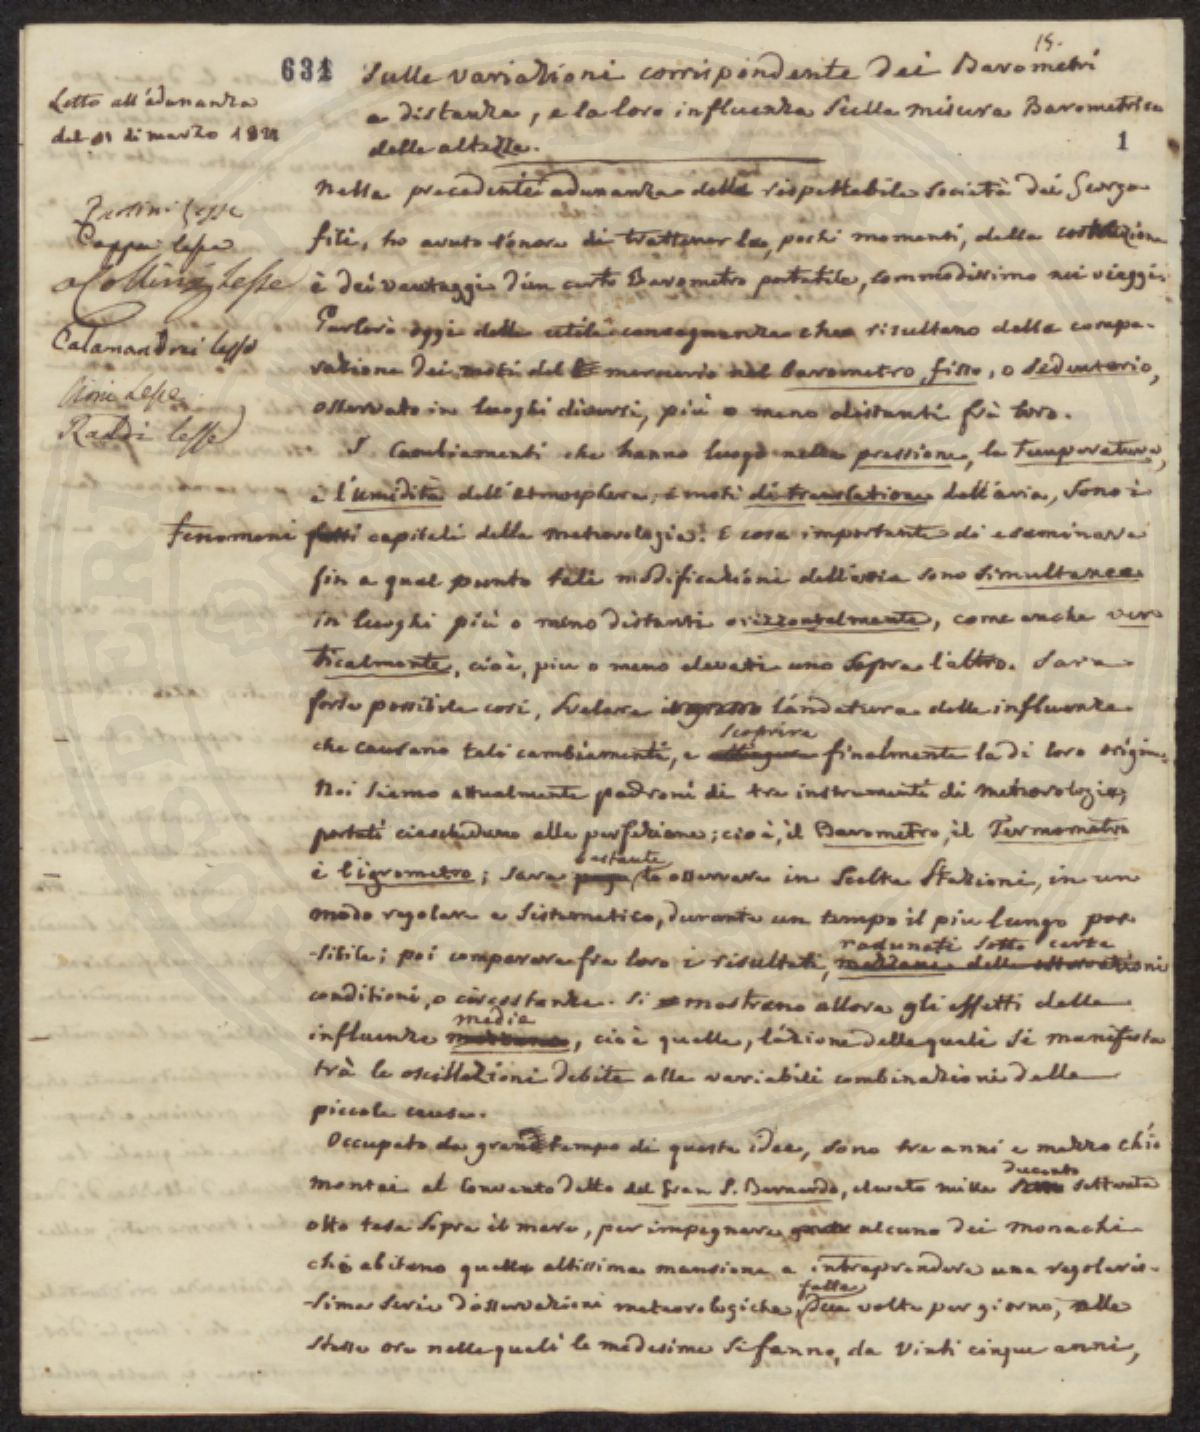 15.
631
Sulle variazioni corrispondente dei Barometri
a distanza, e la loro influenza sulla misura Barometrica
delle altezze.
1
Letto all'adunanza
del di marzo 1821
lesse
Cappa lesse
Collini lesse
Calamandrei lesse
lesse
Raddi lesse
Nella precedente adunanza della rispettabile Società dei Georgo
fili, ho avuto l'onore di trattenerla, pochi momenti, della costruzione
è dei vantaggi d'un certo Barometro portatile, commodissimo nei viaggi.
Parlerò oggi delle utile conseguenze che risultano dalla compa-
razione dei moti del mercurio nel barometro fisso, o sedentario,
osservato in luoghi diversi, più o meno distanti frà loro.
I Cambiamenti che hanno luogo nella pressione, la temperatura,
è l'umidità dell'atmosphera, è moti di translazione dell'aria, sono i
fenomeni fatti capitali della meteorologia. E cosa importante di esaminare
fin a qual punto tali modificazioni dell'aria sono simultanee
in luoghi più o meno distanti orizzontalmente, come anche vero
ticalmente, cioè, piu o meno elevati uno sopra l'altro. Sara
forse possibile così, svelare l'andatura delle influenze
scoprire
che causano tali cambiamenti, e finalmente la di loro origine.
Noi siamo attualmente padroni di tre instrumenti di meteorologia,
portati ciascheduno alla perfezione; cioè, il Barometro, il Termometro
è l'igrometro; sara bastante osservare in scelte stazioni, in un
modo regolare e sistematico, durante un tempo il piu lungo pos-
radunati sotto certe
-sibile; poi comparare fra loro i risultati, mezzane delle osservazioni
conditioni, o circostanze. Si mostrano allora gli effetti delle
media
influenze , cioè quelle, l'azione delle quali si manifesta
trà le oscillazioni debite alle variabili combinazioni delle
piccole cause.
Occupato da gran tempo di queste idee, sono tre anni e mezzo ch'io
duecento
montai al Convento detto del Gran S. Bernardo, elevato mille settanta
otto tese sopra il mare, per impegnare alcuno dei monachi
che abitano quella altissima mansione a intraprendere una regolaris-
fatta
-sima serie d'osservazioni meteorologiche, due volte per giorno, alle
stesse ore nelle quali le medesime si fanno, da vinti cinque anni,